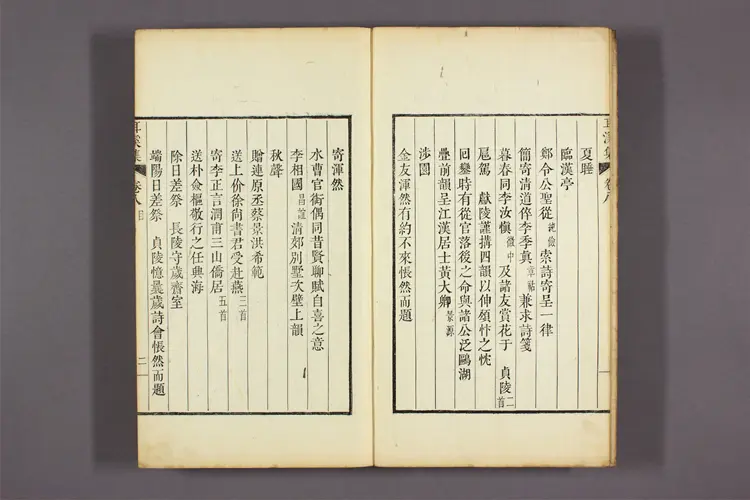 夏睡
臨漢亭
鄭令公聖從純儉索詩寄呈一律
簡寄清道倅李季真章祜兼求詩箋
暮春同李汝愼徽中及諸友賞花于 貞陵二首
扈駕 獻陵謹搆四韻以伸頌忭之忱
回鑾時有從官落後之命與諸公泛鷗湖
疊前韻呈江漢居士黃大卿景源
涉園
金友渾然有約不來悵然而題
耳溪集 卷八目 二
寄渾然
水曹官衙偶同昔賢聊賦自喜之意
李相國昌誼清郊別墅次壁上韻
秋聲
贈連原丞蔡景洪希範
送上价徐尙書君受赴燕三首
寄李正言潤甫三山僑居五首
送朴僉樞敬行之任興海
除日差祭 長陵守歲齋室
端陽日差祭 貞陵憶曩歲詩會悵然而題